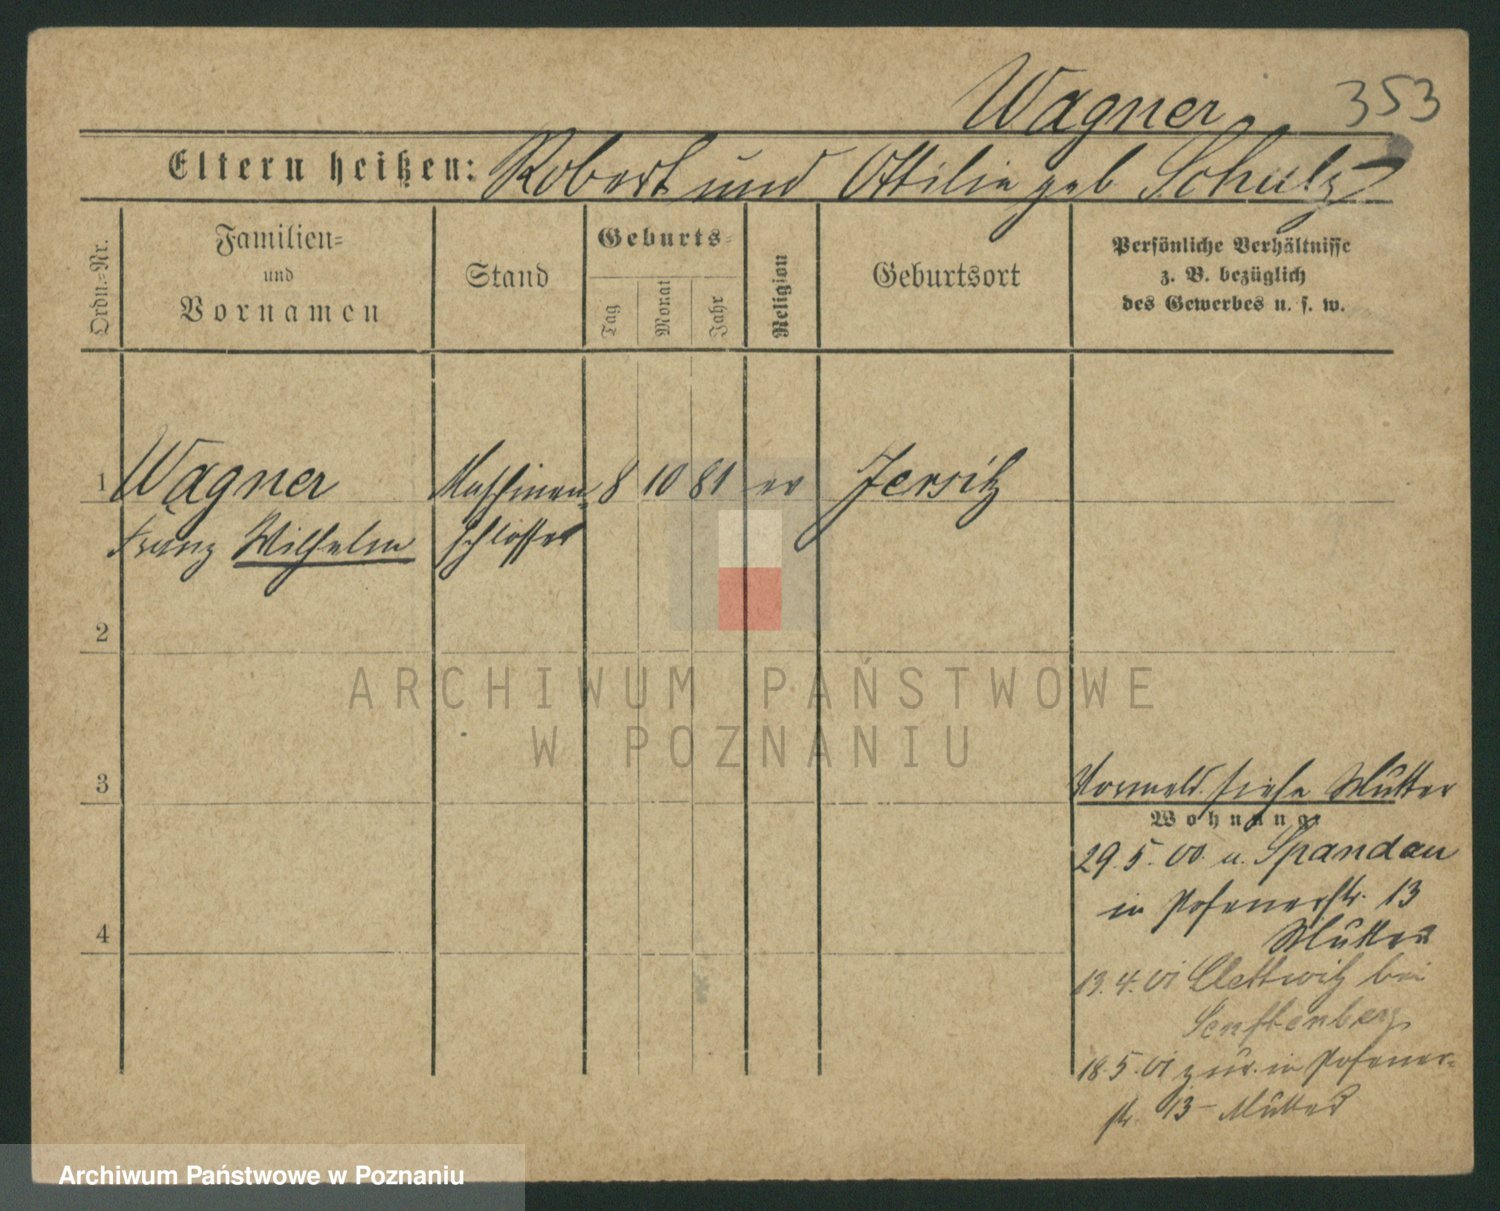 Wagner 353
Eltern heißen: Robert und Ottilie geb Schulz
Ordn.=Nr.
Familien=
und
Vornamen
Stand
Geburts=
Tag
Monat
Jahr
Religion
Geburtsort
Persönliche Verhältnisse
z. B. bezüglich
des Gewerbes u. s. w.
1 Wagner Maschinen= 8 10 81 ev Jersitz
Franz Wilhelm schlosser
2
3
4
Vormals siehe Mutter
Wohnung:
29.5.00. n. Spandau
in Posenerstr. 13
Mutter
13.4.01 Clettwitz bei
Senftenberg
18.5.01 zur. in Posener=
str. 13 – Mutter
ARCHIWUM PAŃSTWOWE
W POZNANIU
Archiwum Państwowe w Poznaniu